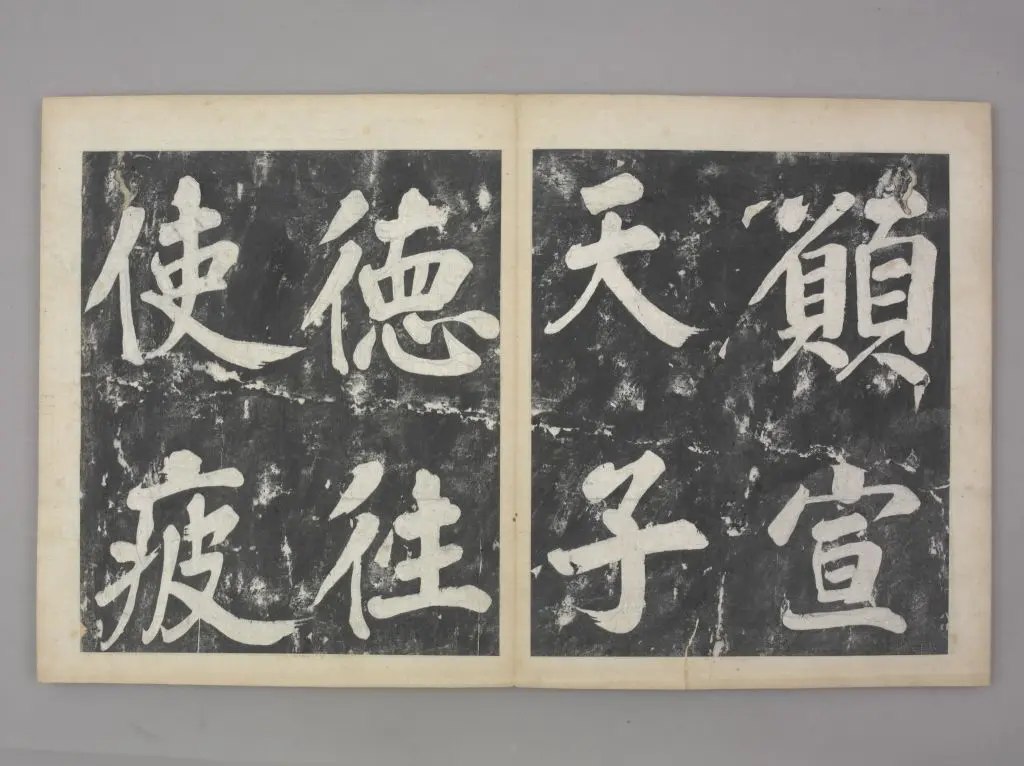 願宣
天子
德往
使疲